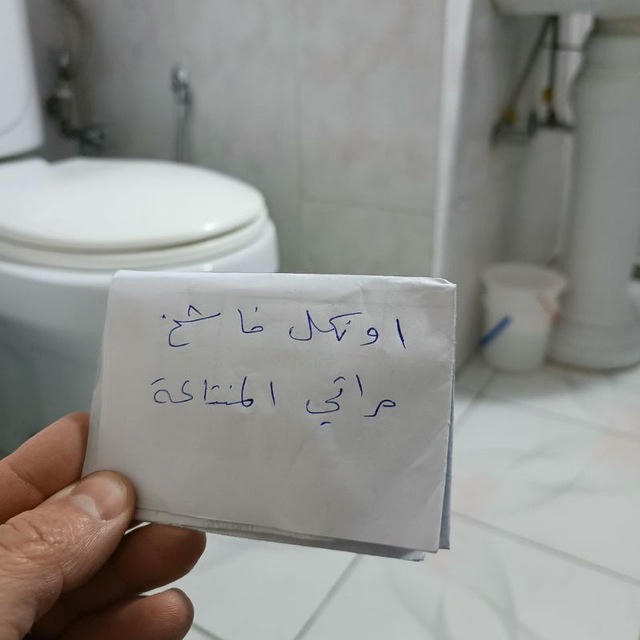 اونكل فاشخ
مراتي المنتاكة